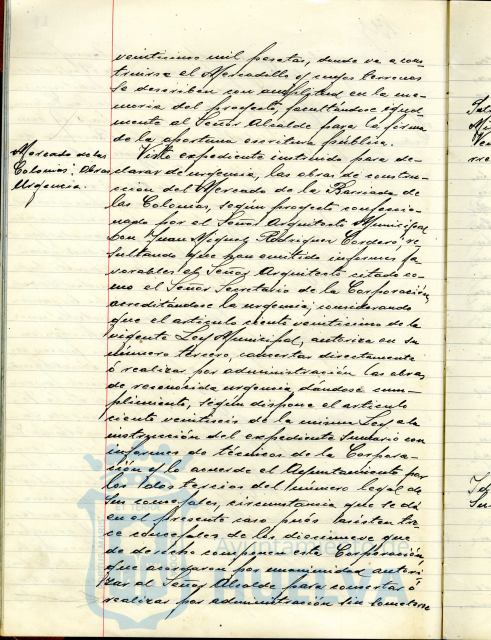 veinticinco mil pesetas, donde va a cons-
truirse el Mercadillo y cuyos terrenos
se describen con amplitud en la me-
moria del proyecto, facultándose igual-
mente al Señor Alcalde para la firma
de la oportuna escritura pública.
Mercado de las
Colonias. Obras
Urgencia.
Visto expediente instruido para de-
clarar de urgencia, las obras de construc-
ción del Mercado de la Barriada de
las Colonias, según proyecto confeccio-
nado por el Señor Arquitecto Municipal
Don Juan Miguel Rodríguez Cordero, re-
sultando que han emitido informes fa-
vorables el Señor Arquitecto citado co-
mo el Señor Secretario de la Corporación
acreditándose la urgencia; considerando
que el articulo ciento veinticinco de la
vigente Ley Municipal, autoriza en su
número tercero, concertar directamente
ó realizar por administración las obras
de reconocida urgencia, dándose cum-
plimiento, según dispone el articulo
ciento veintiseis de la misma Ley a la
instrucción del expediente sumario con
informes de técnicos de la Corpora-
ción y lo acuerde el Ayuntamiento por
los dos tercios del número legal de
sus concejales, circunstancia que se dá
en el presente caso pués asisten tre-
ce concejales de los diecinueve que
de derecho componen esta Corporación,
que acordaron por unanimidad autori-
zar al Señor Alcalde para concertar ó
realizar por administración sin someterse
ET TERRÆ
Ayuntamiento de
HUELVA